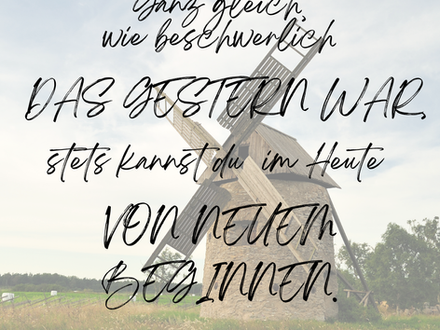 Ganz gleich,
wie beschwerlich
DAS GESTERN WAR,
stets kannst du im Heute
VON NEUEM
BEGINNEN.